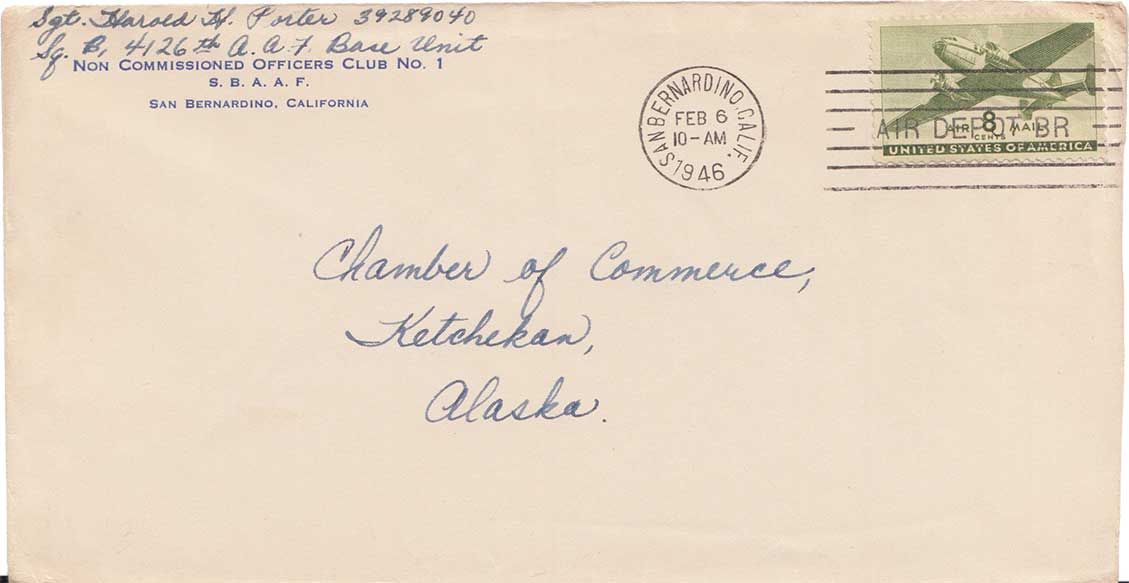 Sgt. Harold H. Porter 39289040
Sq. B, 4126th A.A.F. Base Unit
NON COMMISSIONED OFFICERS CLUB NO. 1
S. B. A. A. F.
SAN BERNARDINO, CALIFORNIA
SAN BERNARDINO, CALIF.
FEB 6
10-AM
1946
AIR DEPOT BR
AIR 8 MAIL
CENTS
UNITED STATES OF AMERICA
Chamber of Commerce,
Ketchekan,
Alaska.